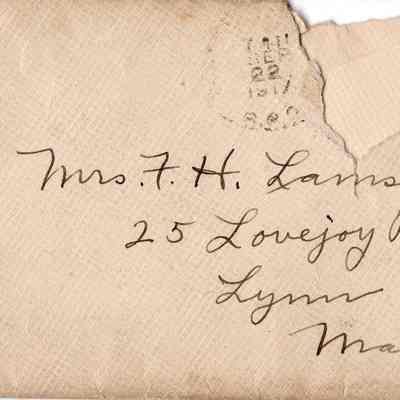 22
1917
Mrs. F. H. Lams
25 Lovejoy
Lynn
Ma